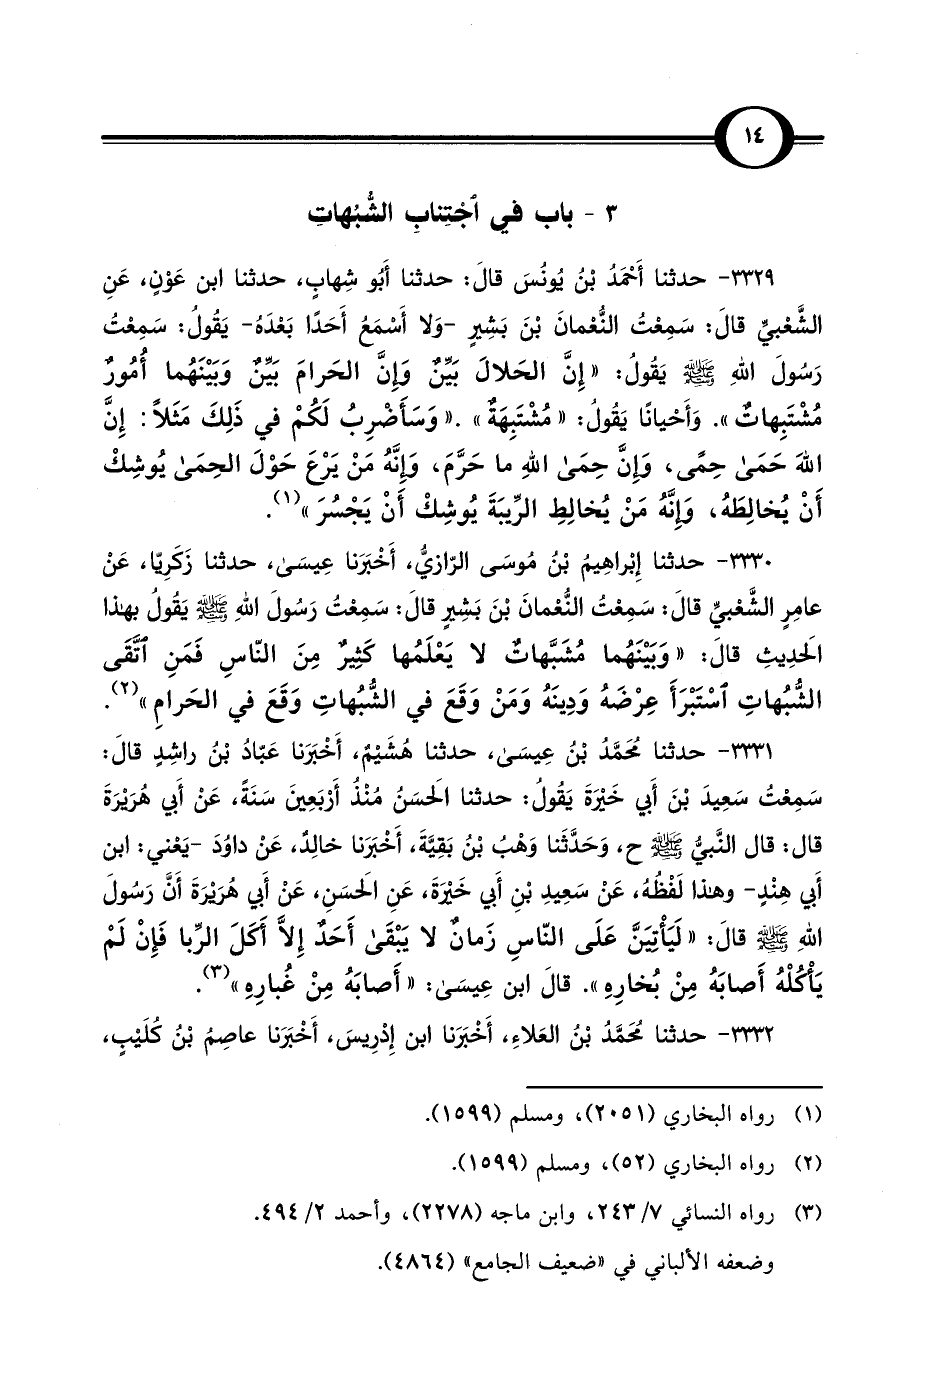 ١٤
٣ - باب في ٱجْتِنابِ الشُّبُهاتِ
٣٣٢٩- حدثنا أَحْمَدُ بْنُ يُونُسَ قالَ: حدثنا أَبُو شِهابٍ، حدثنا ابن عَوْنٍ، عَنِ
الشَّعْبيِّ قالَ: سَمِعْتُ النُّعْمانَ بْنَ بَشِيرٍ -وَلا أَسْمَعُ أَحَدًا بَعْدَهُ- يَقُولُ: سَمِعْتُ
رَسُولَ اللهِ ﷺ يَقُولُ: « إِنَّ الحَلالَ بَيِّنٌ وَإِنَّ الحَرامَ بَيِّنٌ وَبَيْنَهُما أُمُورٌ
مُشْتَبِهاتٌ ». وَأَحْيانًا يَقُولُ: « مُشْتَبِهَةٌ » .« وَسَأَضْرِبُ لَكُمْ في ذَلِكَ مَثَلاً: إِنَّ
اللهَ حَمَىٰ حِمًى، وَإِنَّ حِمَىٰ اللهِ ما حَرَّمَ، وَإِنَّهُ مَنْ يَرْعَ حَوْلَ الحِمَىٰ يُوشِكْ
أَنْ يُخالِطَهُ، وَإِنَّهُ مَنْ يُخالِطِ الرِّيبَةَ يُوشِكْ أَنْ يَجْسُرَ »(١).
٣٣٣٠- حدثنا إِبْراهِيمُ بْنُ مُوسَى الرّازيُّ، أَخْبَرَنا عِيسَىٰ، حدثنا زَكَرِيّا، عَنْ
عامِرٍ الشَّعْبيِّ قالَ: سَمِعْتُ النُّعْمانَ بْنَ بَشِيرٍ قالَ: سَمِعْتُ رَسُولَ اللهِ ﷺ يَقُولُ بهٰذا
الحَدِيثِ قالَ: « وَبَيْنَهُما مُشَبَّهاتٌ لا يَعْلَمُها كَثِيرٌ مِنَ النّاسِ فَمَنِ ٱتَّقَى
الشُّبُهاتِ ٱسْتَبْرَأَ عِرْضَهُ وَدِينَهُ وَمَنْ وَقَعَ في الشُّبُهاتِ وَقَعَ في الحَرامِ »(٢).
٣٣٣١- حدثنا مُحَمَّدُ بْنُ عِيسَىٰ، حدثنا هُشَيْمٌ، أَخْبَرَنا عَبّادُ بْنُ راشِدٍ قالَ:
سَمِعْتُ سَعِيدَ بْنَ أَبي خَيْرَةَ يَقُولُ: حدثنا الحَسَنُ مُنْذُ أَرْبَعِينَ سَنَةً، عَنْ أَبي هُرَيْرَةَ
قال: قال النَّبيُّ ﷺ ح، وَحَدَّثَنا وَهْبُ بْنُ بَقِيَّةَ، أَخْبَرَنا خالِدٌ، عَنْ داوُدَ -يَعْني: ابن
أَبي هِنْدٍ- وهٰذا لَفْظُهُ، عَنْ سَعِيدِ بْنِ أَبي خَيْرَةَ، عَنِ الحَسَنِ، عَنْ أَبي هُرَيْرَةَ أَنَّ رَسُولَ
اللهِ ﷺ قالَ: « لَيَأْتِيَنَّ عَلَى النّاسِ زَمانٌ لا يَبْقَىٰ أَحَدٌ إِلاَّ أَكَلَ الرِّبا فَإِنْ لَمْ
يَأْكُلْهُ أَصابَهُ مِنْ بُخارِهِ ». قالَ ابن عِيسَىٰ: « أَصابَهُ مِنْ غُبارِهِ »(٣).
٣٣٣٢- حدثنا مُحَمَّدُ بْنُ العَلاءِ، أَخْبَرَنا ابن إِدْرِيسَ، أَخْبَرَنا عاصِمُ بْنُ كُلَيْبٍ،
(١) رواه البخاري (٢٠٥١)، ومسلم (١٥٩٩).
(٢) رواه البخاري (٥٢)، ومسلم (١٥٩٩).
(٣) رواه النسائي ٧/ ٢٤٣، وابن ماجه (٢٢٧٨)، وأحمد ٢/ ٤٩٤.
وضعفه الألباني في «ضعيف الجامع» (٤٨٦٤).